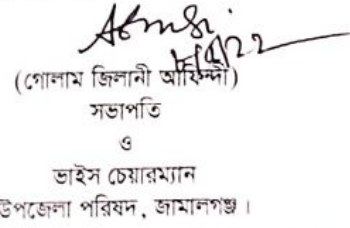 (গোলাম জিলানী আফিন্দী)
সভাপতি
ও
ভাইস চেয়ারম্যান
উপজেলা পরিষদ, জামালগঞ্জ।